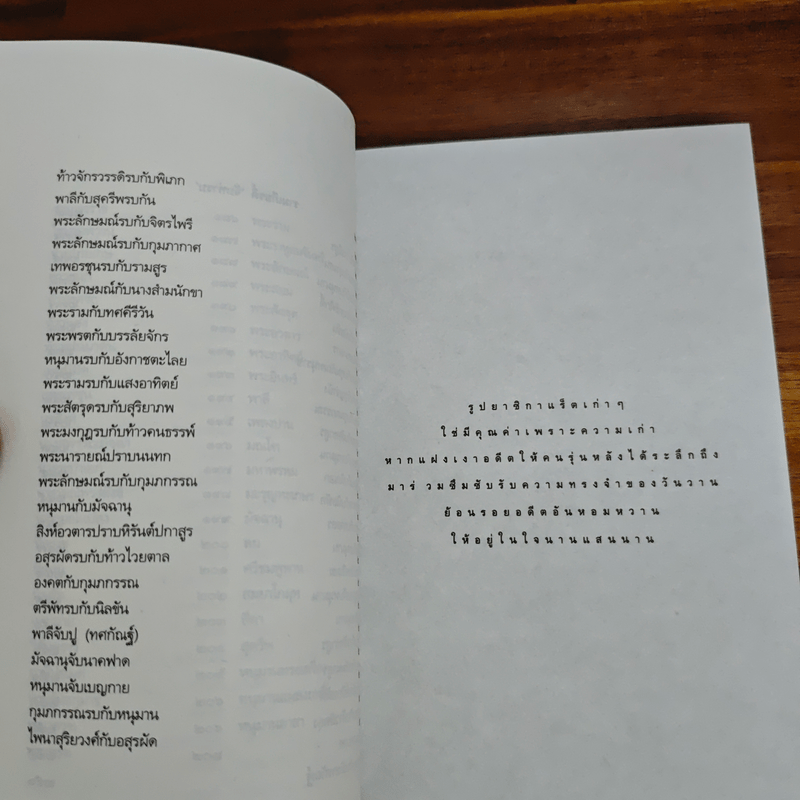 ท้าวจักรวรรดิรบกับพิเภก
พาลีกับสุครีพรบกัน
พระลักษมณ์รบกับจิตรไพรี
พระลักษมณ์รบกับกุมภากาศ
เทพอรชุนรบกับรามสูร
พระลักษมณ์กับนางสำมนักขา
พระรามกับทศคีรีวัน
พระพรตกับบรรลัยจักร
หนุมานรบกับอังกาชตะไลย
พระรามรบกับแสงอาทิตย์
พระสัตรุดรบกับสุริยาภพ
พระมงกุฎรบกับท้าวคนธรรพ์
พระนารายณ์ปราบนนทก
พระลักษมณ์รบกับกุมภกรรณ
หนุมานกับมัจฉานุ
สิงห์อวตารปราบหิรันต์ปกาสูร
อสุรผัดรบกับท้าวไวยตาล
องคตกับกุมภกรรณ
ตรีพัทรบกับนิลขัน
พาลีจับปู (ทศกัณฐ์)
มัจฉานุจับนาคฟาด
หนุมานจับเบญกาย
กุมภกรรณรบกับหนุมาน
ไพนาสุริยวงศ์กับอสุรผัด
รูปยาซิกาแร็ตเก่าๆ
ใช่มีคุณค่าเพราะความเก่า
หากแฝงเงาอดีตให้คนรุ่นหลังได้ระลึกถึง
มาร่วมซึมซับรับความทรงจำของวันวาน
ย้อนรอยอดีตอันหอมหวาน
ให้อยู่ในใจนานแสนนาน